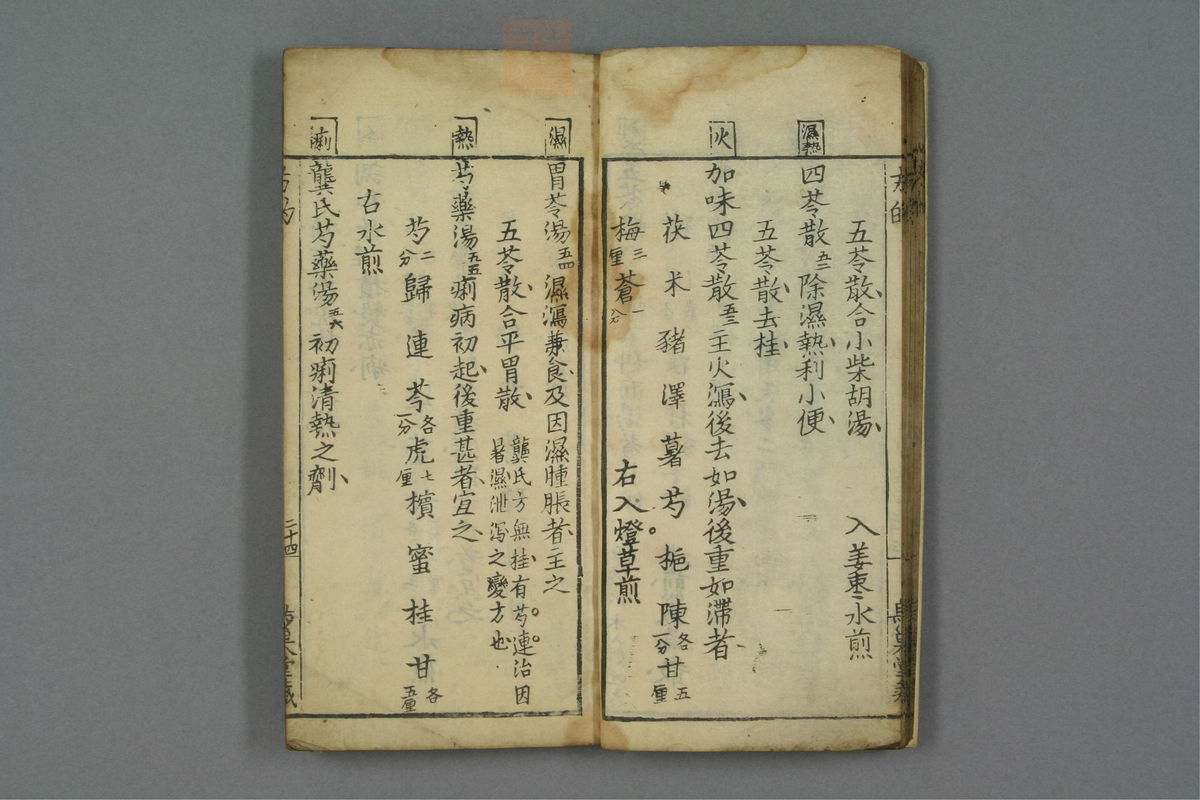 五苓散合小柴胡湯　入姜枣水煎
濕熱
四苓散五二除濕熱利小便
五苓散去桂
火
加味四苓散五三主火瀉後去如湯後重如滞者
茯　朮　豬　澤　薯　芍　梔　陳各一分　甘五厘
梅三厘　蒼一分　右入燈草煎
濕
胃苓湯五四濕瀉兼食及因濕腫脹者主之
五苓散合平胃散　龔氏方無桂有芍連治因暑濕泄瀉之變方也
熱
芍藥湯五五痢病初起後重甚者宜之
芍二分　歸　連　芩各一分　虎七厘　檳　蜜　桂　甘各五厘
右水煎
痢
龔氏芍藥湯五六初痢清熱之劑
二十四